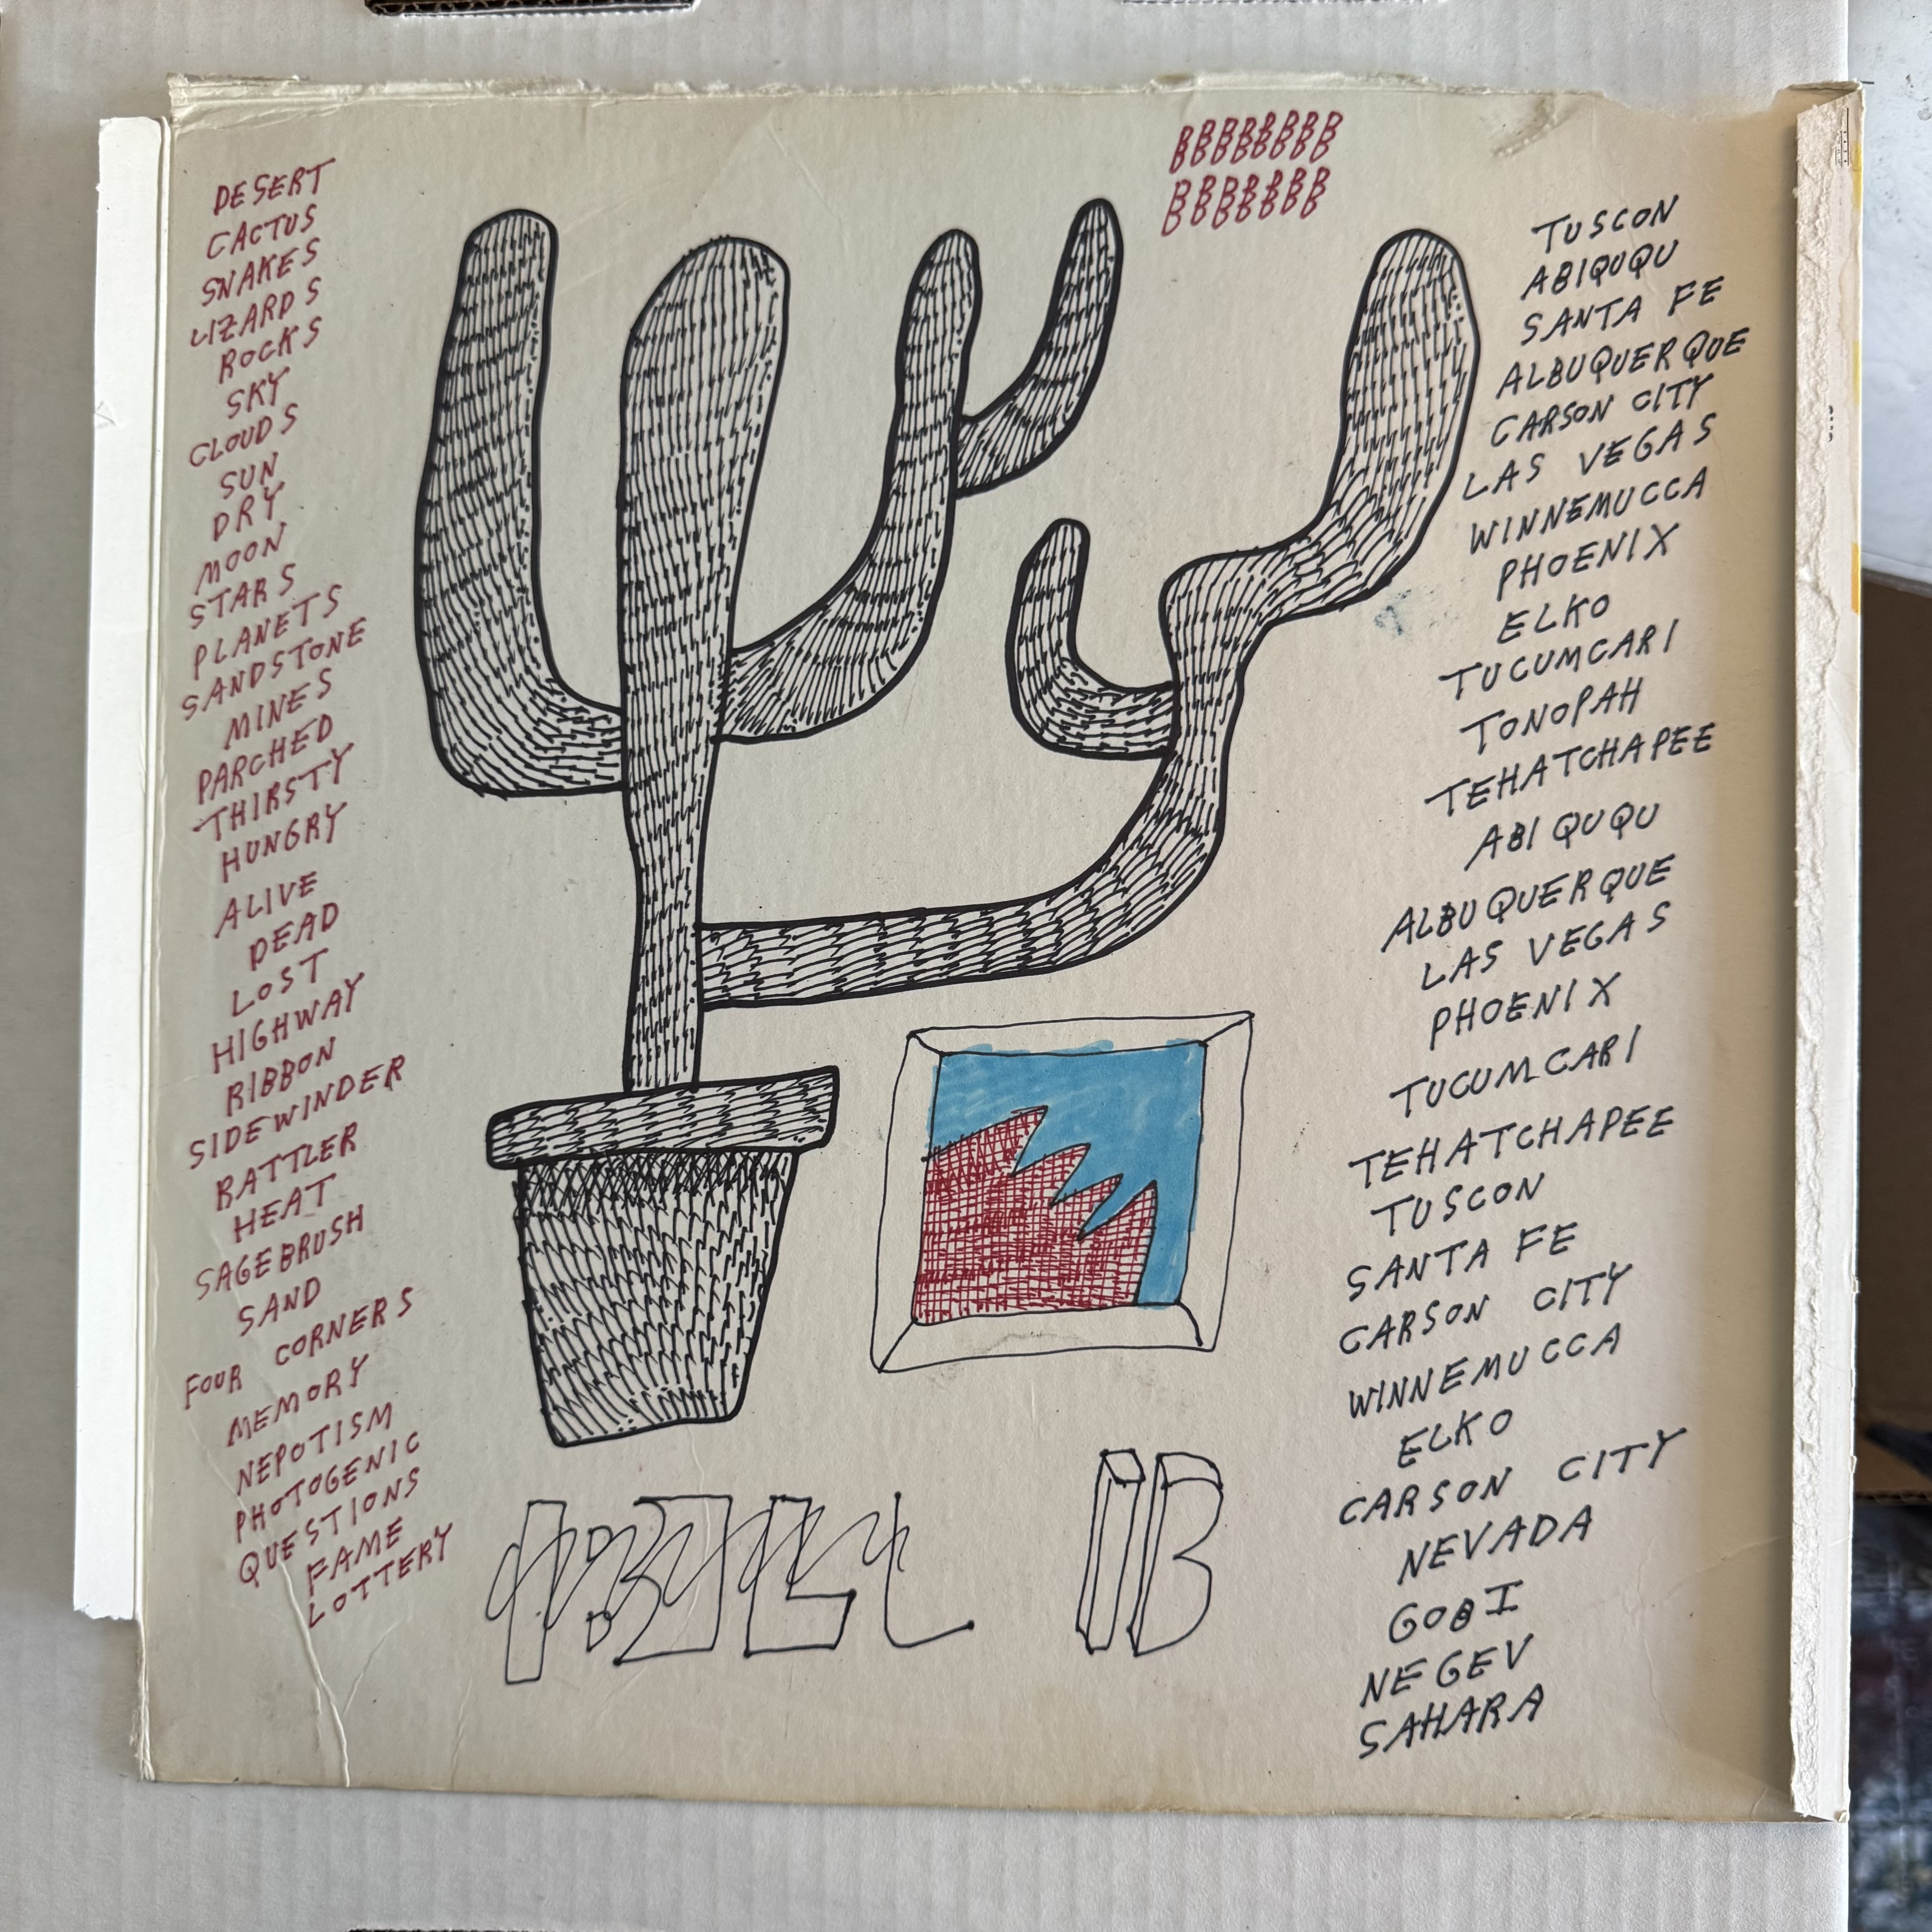 DESERT
CACTUS
SNAKES
LIZARDS
ROCKS
SKY
CLOUDS
SUN
DRY
MOON
STARS
PLANETS
SANDSTONE
MINES
PARCHED
THIRSTY
HUNGRY
ALIVE
DEAD
LOST
HIGHWAY
RIBBON
SIDEWINDER
RATTLER
HEAT
SAGEBRUSH
SAND
FOUR CORNERS
MEMORY
NEPOTISM
PHOTOGENIC
QUESTIONS
FAME
LOTTERY
BBBBBBBB
BBBBBBB
TUSCON
ABIQUQU
SANTA FE
ALBUQUERQUE
CARSON CITY
LAS VEGAS
WINNEMUCCA
PHOENIX
ELKO
TUCUMCARI
TONOPAH
TEHATCHAPEE
ABIQUQU
ALBUQUERQUE
LAS VEGAS
PHOENIX
TUCUMCARI
TEHATCHAPEE
TUSCON
SANTA FE
CARSON CITY
WINNEMUCCA
ELKO
CARSON CITY
NEVADA
GOBI
NEGEV
SAHARA